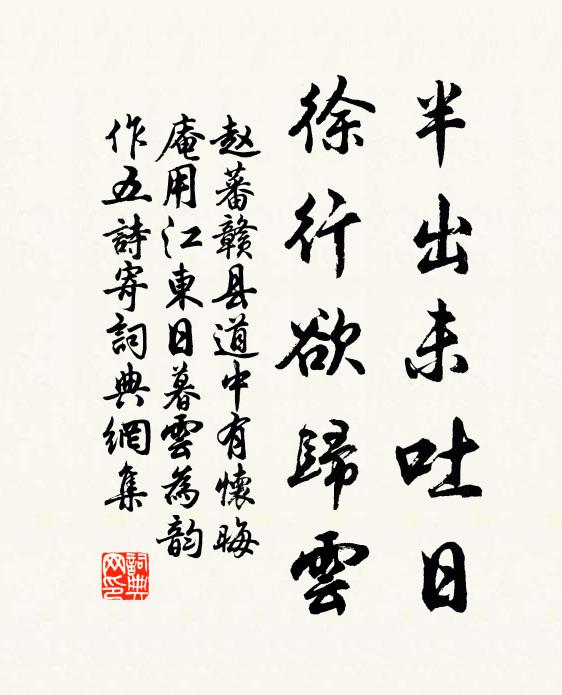 半出未吐日
徐行欲歸雲
赵蕃贛县道中有懷晦
庵用江東日暮雲為韵
作五詩寄詞典網集
詞典
网印